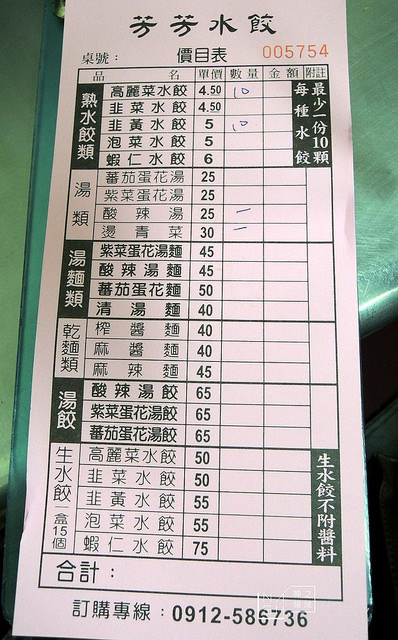 芳芳水餃
桌號： 價目表 005754
品名 單價 數量 金額 附註
熟水餃類
高麗菜水餃 4.50 10
韭菜水餃 4.50
韭黃水餃 5 10
泡菜水餃 5
蝦仁水餃 6
每種水餃最少一份10顆
湯類
蕃茄蛋花湯 25
紫菜蛋花湯 25
酸辣湯 25 一
燙青菜 30 一
湯麵類
紫菜蛋花湯麵 45
酸辣湯麵 45
蕃茄蛋花麵 50
清湯麵 40
乾麵類
榨醬麵 40
麻醬麵 40
麻辣麵 45
湯餃
酸辣湯餃 65
紫菜蛋花湯餃 65
蕃茄蛋花湯餃 65
生水餃一盒15個
高麗菜水餃 50
韭菜水餃 50
韭黃水餃 55
泡菜水餃 55
蝦仁水餃 75
生水餃不附醬料
合計：
訂購專線：0912-586736